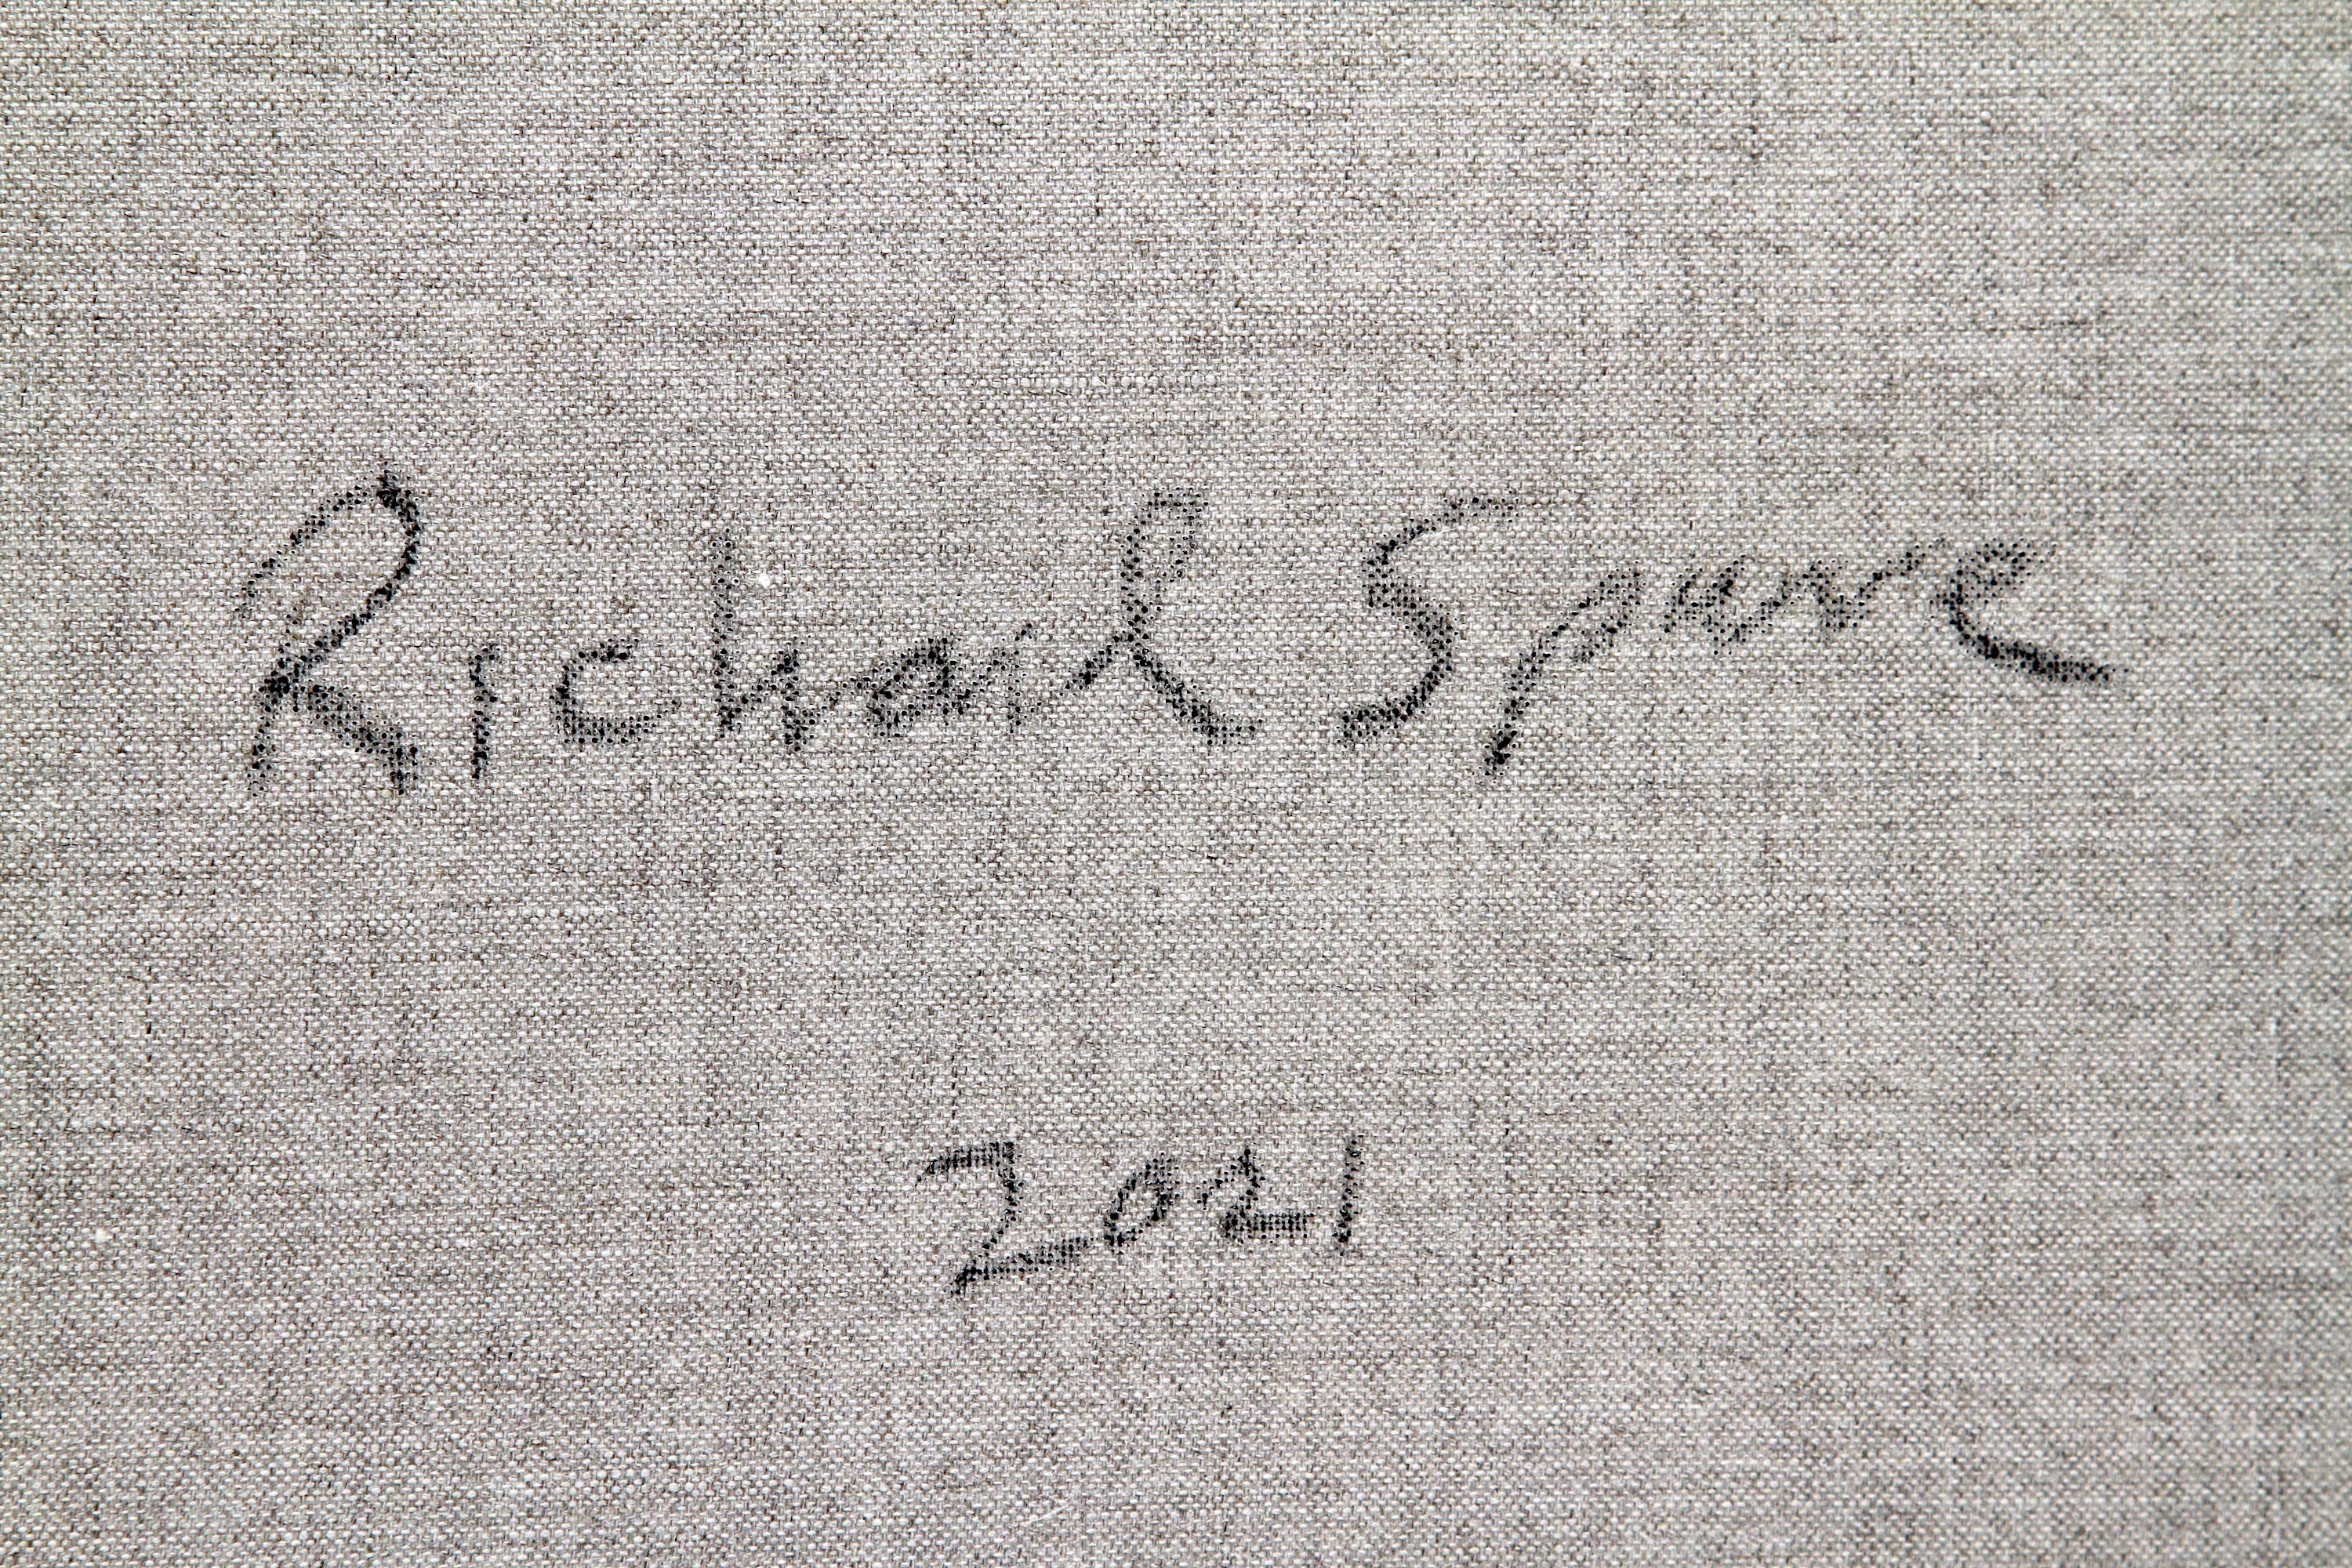 Richard Spare
2021